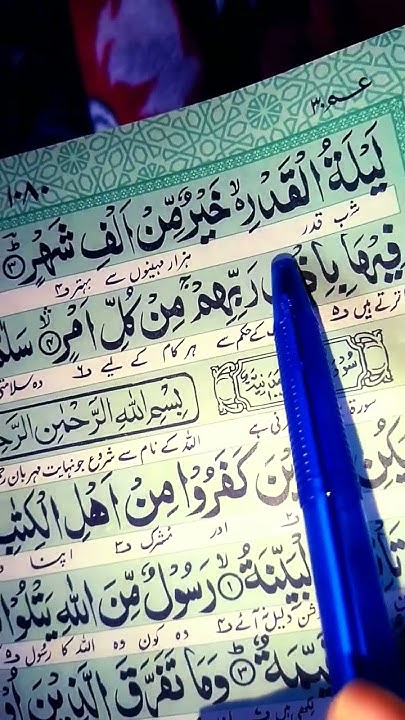 عم ۳۰
۱۰۸۰
لَيْلَةُ الْقَدْرِ ۙ خَيْرٌ مِّنْ اَلْفِ شَهْرٍ ؕ ﴿۳﴾
شب قدر ہزار مہینوں سے بہتر ف۴
فِيْهَا بِاِذْنِ رَبِّهِمْ ۚ مِنْ كُلِّ اَمْرٍ ۙ ﴿۴﴾
اترتے ہیں ف۵ کے حکم سے ہر کام کے لیے ف۶ وہ سلامتی
بِسْمِ اللّٰهِ الرَّحْمٰنِ
سورۃ اللہ کے نام سے شروع جو نہایت مہربان
كَفَرُوْا مِنْ اَهْلِ الْكِتٰبِ
اور مشرک ف۲ اپنا
الْبَيِّنَةُ ۙ ﴿۱﴾ رَسُوْلٌ مِّنَ اللّٰهِ يَتْلُوْا
دلیل نہ آئے ف۴ وہ کون وہ اللہ کا رسول ف۵
وَمَا تَفَرَّقَ الَّذِيْنَ